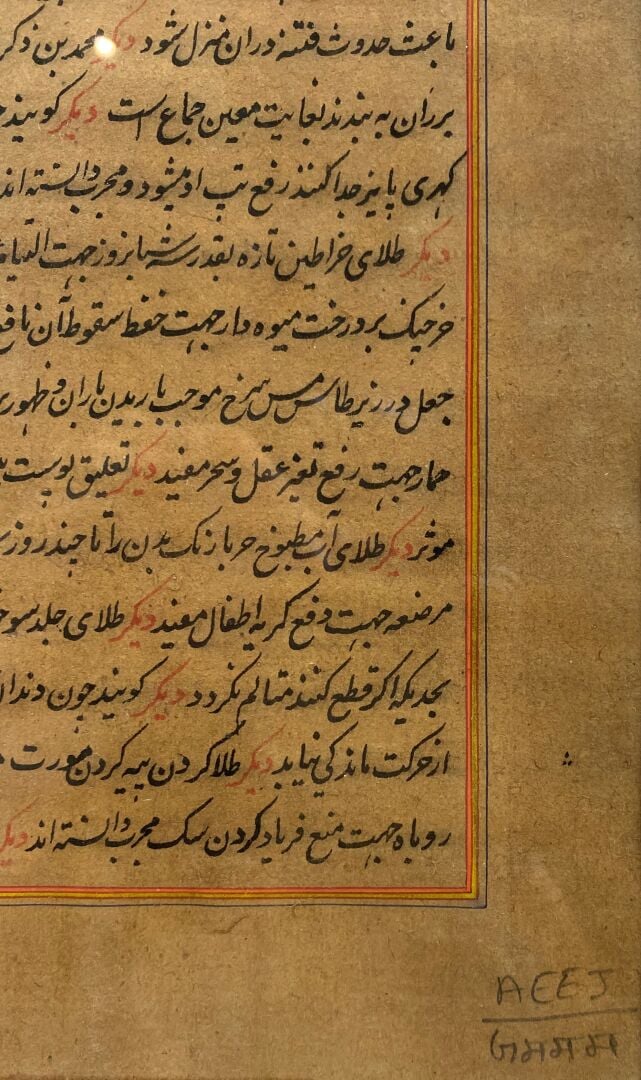 باعث حدوث فتنه در ان منزل شود دیکر محمد بن ذکر
برران به بندند بغایت معین جماع است دیکر کویند
کهری پاییز جدا کنند رفع تب او میشود و مجرب دانسته اند
دیکر طلای خراطین تازه بقدر سه شبانروز جهت
خرچنک بر درخت میوه دار جهت حفظ سقوط آن نافع
جعل در زیر طاس مس سرخ موجب باریدن باران و ظهور
حمار جهت رفع تغیر عقل و سحر مفید دیکر تعلیق پوست
موثر دیکر طلای آب مطبوخ حربا رنک بدن را تا چند روز
مرضعه جهت دفع کریه اطفال مفید دیکر طلای جلد
بحدیکه اکر قطع کنند متالم نکردد دیکر کویند چون
از حرکت ماندکی نیابد دیکر طلا کردن پیه کردن
روباه جهت منع فریاد کردن سک مجرب دانسته اند دیکر
AEEJ